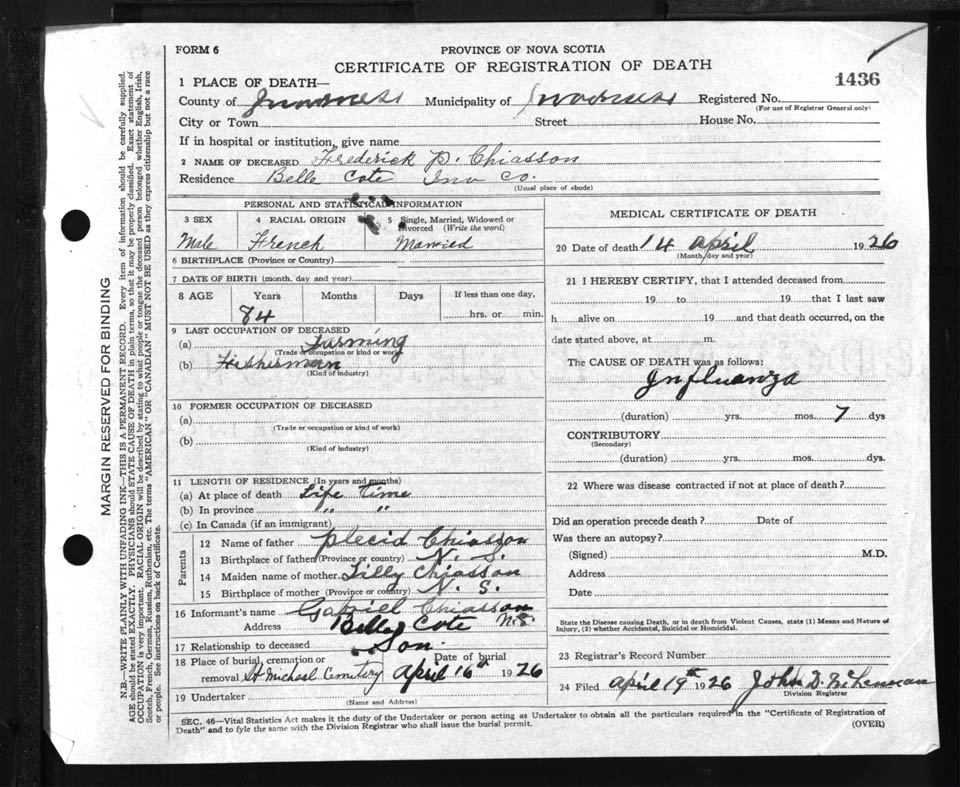 FORM 6
PROVINCE OF NOVA SCOTIA
CERTIFICATE OF REGISTRATION OF DEATH
1436
1 PLACE OF DEATH—
County of Inverness Municipality of Inverness Registered No.
(For use of Registrar General only)
City or Town Street House No.
If in hospital or institution, give name
2 NAME OF DECEASED Frederick P. Chiasson
Residence Belle Cote Inv Co.
(Usual place of abode)
PERSONAL AND STATISTICAL INFORMATION
3 SEX 4 RACIAL ORIGIN 5 Single, Married, Widowed or Divorced (Write the word)
Male French Married
6 BIRTHPLACE (Province or Country)
7 DATE OF BIRTH (month, day and year)
8 AGE Years Months Days If less than one day,
84 hrs. or min.
9 LAST OCCUPATION OF DECEASED
(a) Farming
(Trade or occupation or kind or work)
(b) Fisherman
(Kind of industry)
10 FORMER OCCUPATION OF DECEASED
(a)
(Trade or occupation or kind of work)
(b)
(Kind of Industry)
11 LENGTH OF RESIDENCE (In years and months)
(a) At place of death Life time
(b) In province " "
(c) In Canada (if an immigrant)
Parents
12 Name of father Plecid Chiasson
13 Birthplace of father (Province or country) N. S.
14 Maiden name of mother Lilly Chiasson
15 Birthplace of mother (Province or country) N. S.
16 Informant's name Gabriel Chiasson
Address Belle Cote N.S.
17 Relationship to deceased Son
18 Place of burial, cremation or Date of burial
removal St Michael Cemetery April 16th 1926
19 Undertaker
(Name and Address)
MEDICAL CERTIFICATE OF DEATH
20 Date of death 14 April 1926
(Month, day and year)
21 I HEREBY CERTIFY, that I attended deceased from
19 to 19 that I last saw
h alive on 19 and that death occurred, on the
date stated above, at m.
The CAUSE OF DEATH was as follows:
Influanza
(duration) yrs. mos. 7 dys
CONTRIBUTORY
(Secondary)
(duration) yrs. mos. dys.
22 Where was disease contracted if not at place of death?
Did an operation precede death? Date of
Was there an autopsy?
(Signed) M.D.
Address
Date
State the Disease causing Death, or in death from Violent Causes, state (1) Means and Nature of
Injury, (2) whether Accidental, Suicidal or Homicidal.
23 Registrar's Record Number
24 Filed April 19th 1926 John D.
Division Registrar
SEC. 46—Vital Statistics Act makes it the duty of the Undertaker or person acting as Undertaker to obtain all the particulars required in the "Certificate of Registration of
Death" and to fyle the same with the Division Registrar who shall issue the burial permit. (OVER)
MARGIN RESERVED FOR BINDING
N.B.—WRITE PLAINLY WITH UNFADING INK—THIS IS A PERMANENT RECORD. Every item of information should be carefully supplied.
AGE should be stated EXACTLY. PHYSICIANS should STATE CAUSE OF DEATH in plain terms, so that it may be properly classified. Exact statement of
OCCUPATION is very important. RACIAL ORIGIN will be described by stating to what people or tongue the deceased person belonged whether English, Irish,
Scotch, French, German, Russian, Ruthenian, etc. The terms "AMERICAN" OR "CANADIAN" MUST NOT BE USED as they express citizenship but not a race
or people. See instructions on back of Certificate.